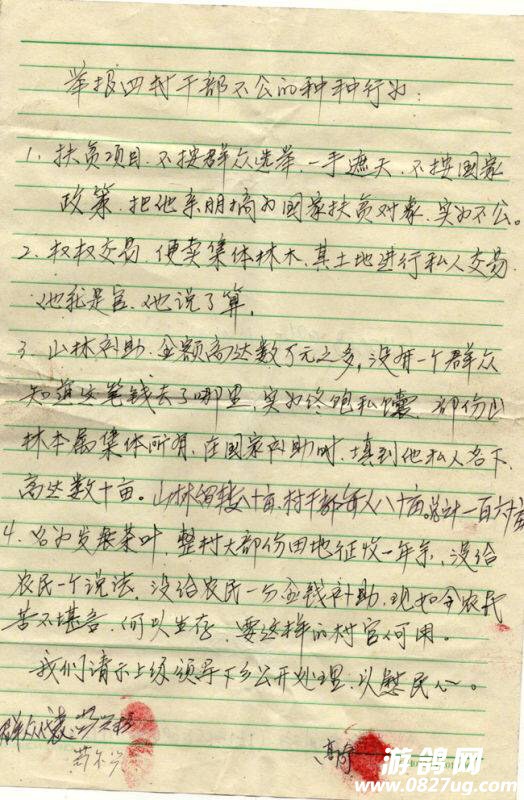 举报四村干部不公的种种行为:
1. 扶贫项目.不按群众选举.一手遮天.不按国家
政策.把他亲朋搞为国家扶贫对象.实为不公。
2. 权权交易.便卖集体林木.其土地进行私人交易.
他说了算.
3. 山林补助.金额高达数万元之多,没有一个群众
知道这笔钱去了哪里.实为终饱私囊.部份山
林本属集体所有.在国家补助时.填到他私人名下.
高达数十亩。山林八十亩.村干部每人八十亩。总计一百六十亩
4. 名为发展茶叶.整村大部份田地征收一年余.没给
农民一个说法.没给农民一分金钱补助.现如今农民
苦不堪言.何以生存.要这样的村官何用。
我们请示上级领导下乡公开处理.以慰民心。
群众代表:
游鸽网
www.0827ug.com